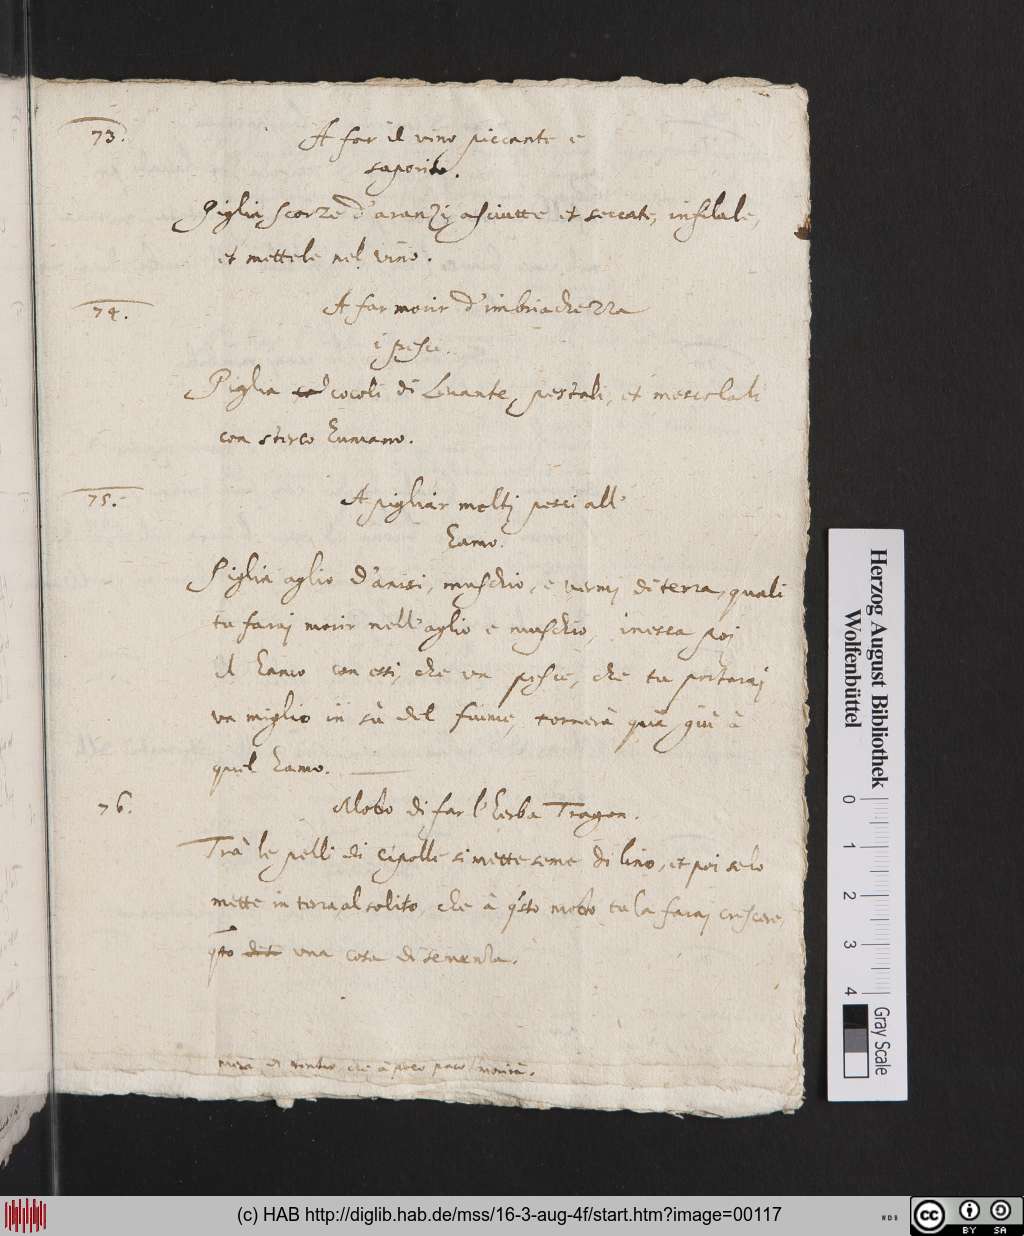 73.
A far il vino piccante e
saporito.
Piglia scorze d'aranzi asciutte et seccate, infilale,
et mettele nel vino.
74.
A far morir d'imbriachezza
i pesci.
Piglia cocoli di Levante, pestali, et mescolali
con sterco humano.
75.
A pigliar molti pesci all'
hamo.
Piglia oglio d'anisi, muschio, e vermi di terra, quali
tu farai morir nell'oglio e muschio, inesca poi
il hamo con essi, che un pesce, che tu portarai
un miglio in sù del fiume, tornerà quà giù à
quel hamo.
76.
Modo di far l'herba Tragon.
Trà le pelli di cipolle si mette seme di lino, et poi se lo
mette in terra, al solito, che à q'sto modo tu la farai crescere,
q'sto una cosa di
che à poco poco morirà.
Herzog August Bibliothek
Wolfenbüttel
0 1 2 3 4
Gray Scale
(c) HAB http://diglib.hab.de/mss/16-3-aug-4f/start.htm?image=00117
WDB
cc BY SA